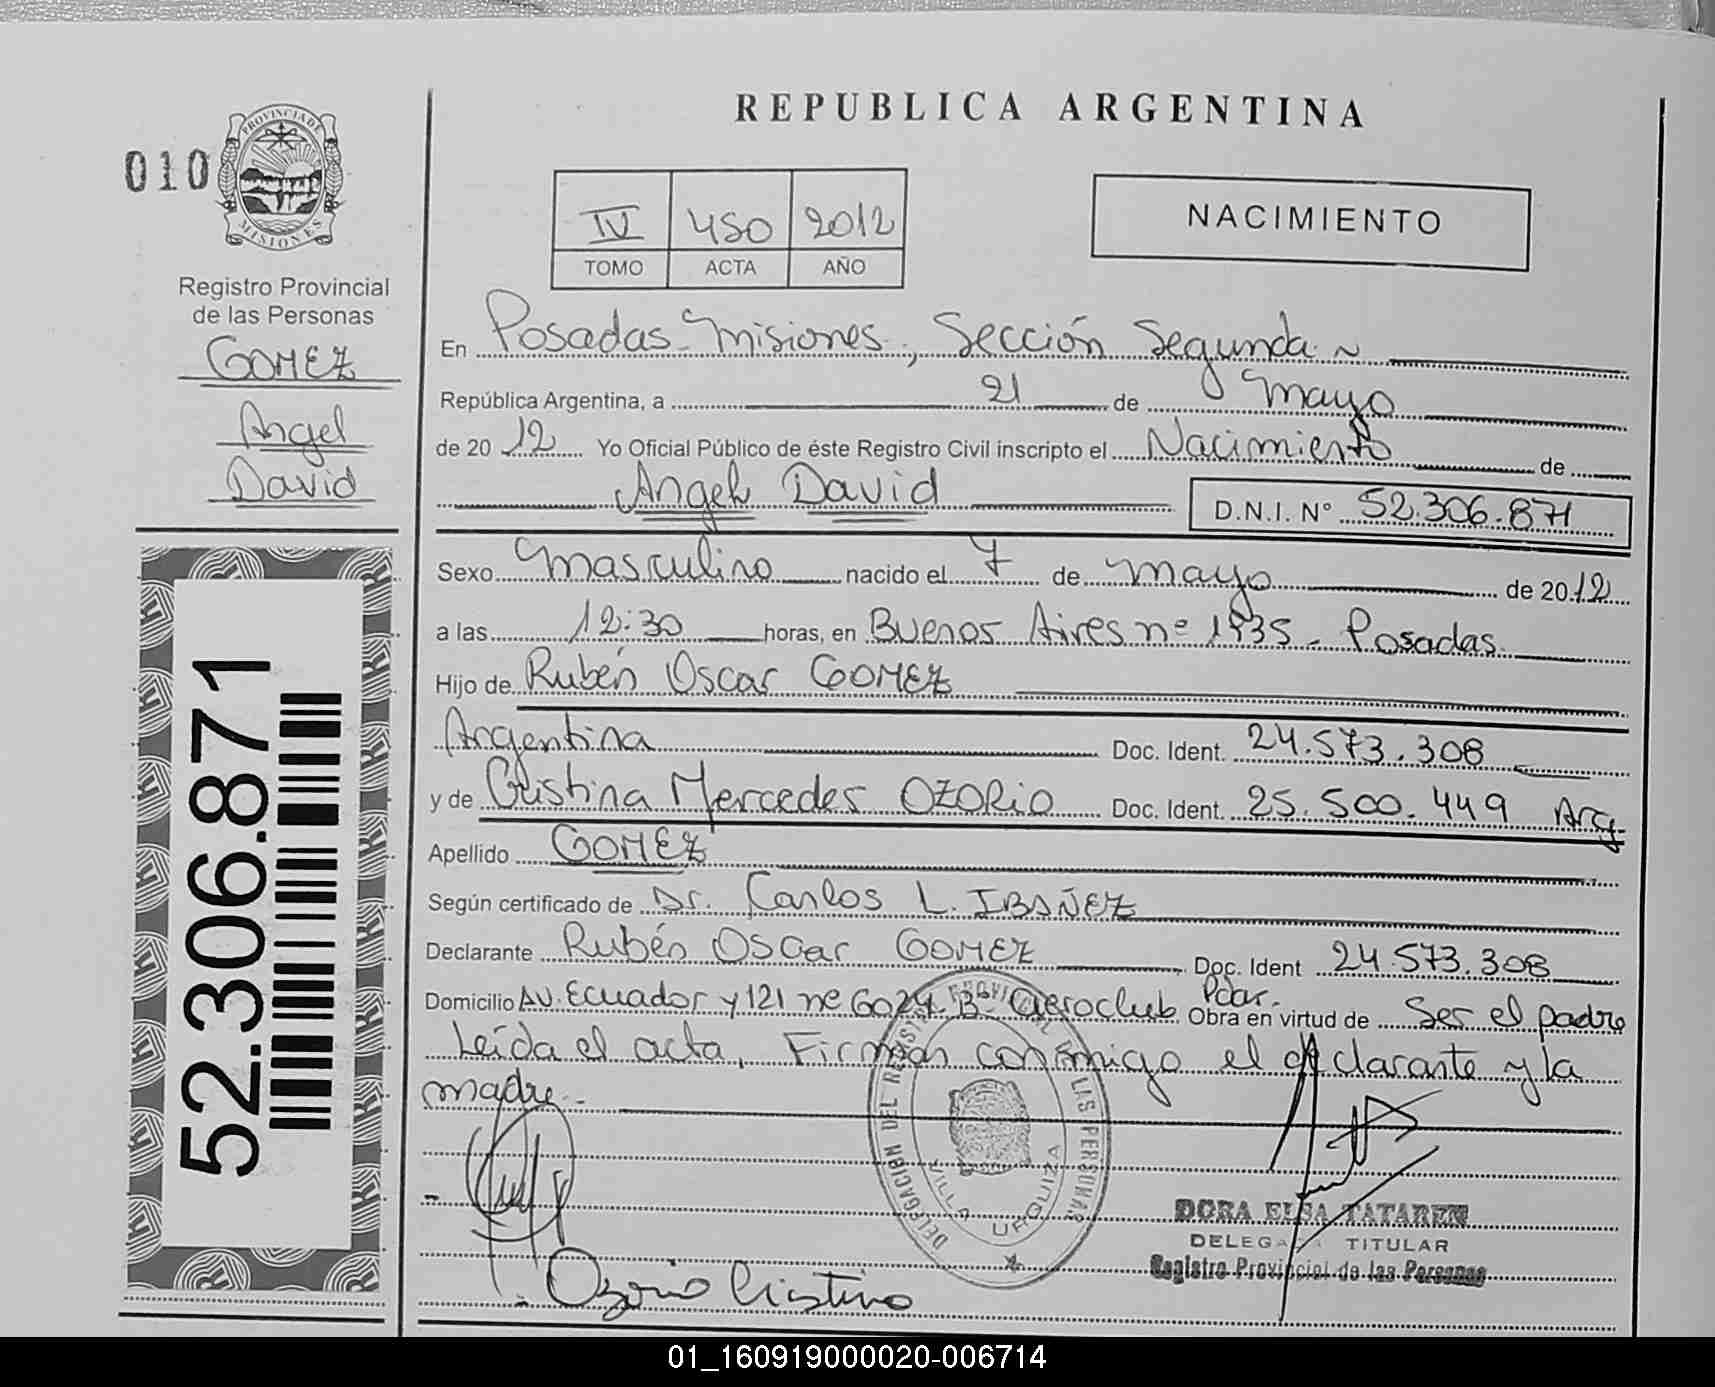 REPUBLICA ARGENTINA
010
PROVINCIA DE
MISIONES
Registro Provincial
de las Personas
GOMEZ
Angel
David
52.306.871
IV 450 2012
TOMO ACTA AÑO
NACIMIENTO
En Posadas - Misiones, Sección Segunda
República Argentina, a 21 de Mayo
de 2012 Yo Oficial Público de éste Registro Civil inscripto el Nacimiento de
Angel David D.N.I. N° 52.306.871
Sexo Masculino nacido el 7 de Mayo de 2012
a las 12:30 horas, en Buenos Aires nº 1935 - Posadas
Hijo de Rubén Oscar GOMEZ
Argentina Doc. Ident. 24.573.308
y de Cristina Mercedes OZORIO Doc. Ident. 25.500.449 Arg.
Apellido GOMEZ
Según certificado de Dr. Carlos L. IBAÑEZ
Declarante Rubén Oscar GOMEZ Doc. Ident 24.573.308
Domicilio AV. Ecuador y 121 nº 6024 Bº Aeroclub Pdas. Obra en virtud de Ser el padre
Leída el acta, Firman conmigo el declarante y la
madre.-
DELEGACION DEL REGISTRO PROVINCIAL DE LAS PERSONAS
VILLA URQUIZA
DORA ELSA TATAREN
DELEGADA TITULAR
Registro Provincial de las Personas
Ozorio Cristina
01_160919000020-006714